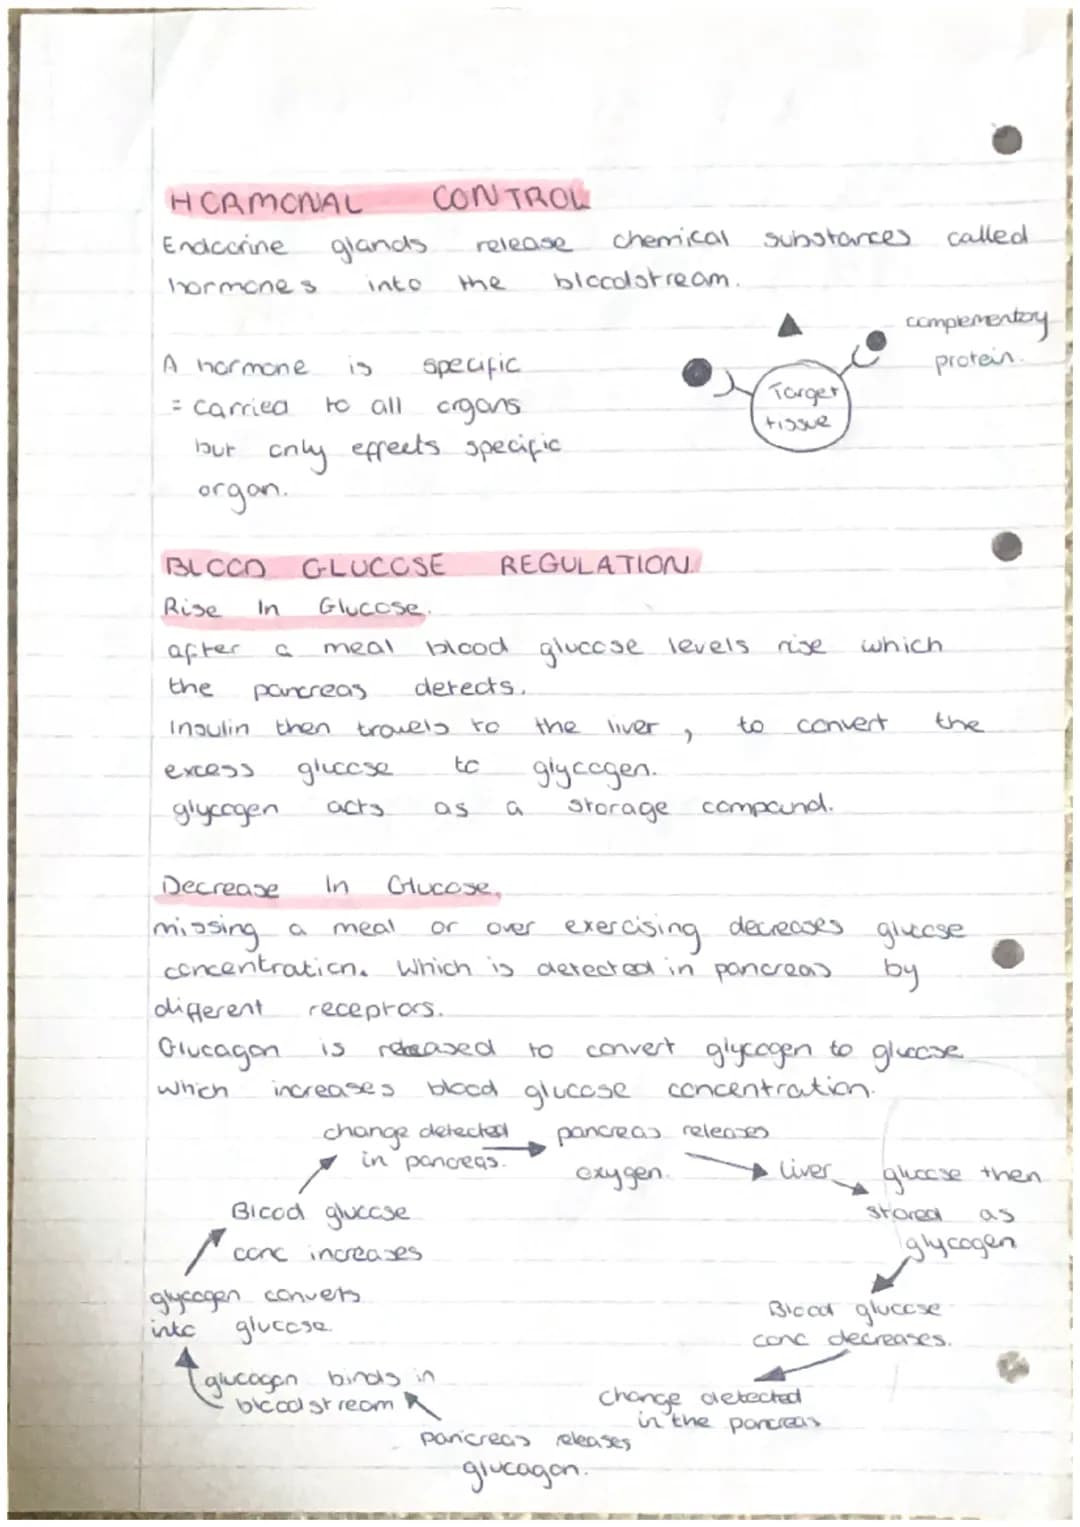 HORMONAL CONTROL
Endocrine glands release chemical substances called
hormones into the bloodstream.
complementary
protein.
A hormone is specific
= carried to all organs
but only effects specific
organ.
Target
tissue
BLOOD GLUCOSE REGULATION.
Rise In Glucose.
after a meal blood glucose levels rise which
the pancreas detects.
Insulin then travels to the liver, to convert the
excess glucose to glycogen.
glycogen acts as a storage compound.
Decrease In Glucose.
missing a meal or over exercising decreases glucose
concentration. Which is detected in pancreas by
different receptors.
Glucagon is released to convert glycogen to glucose
which increases blood glucose concentration.
change detected
in pancreas.
pancreas releases
oxygen.
liver
glucose then
stored as
glycogen
Blood glucose
conc increases
glycogen converts
into glucose
Blood glucose
conc decreases.
glucagon binds in
bloodstream
change detected
in the pancreas
pancreas releases
glucagon.